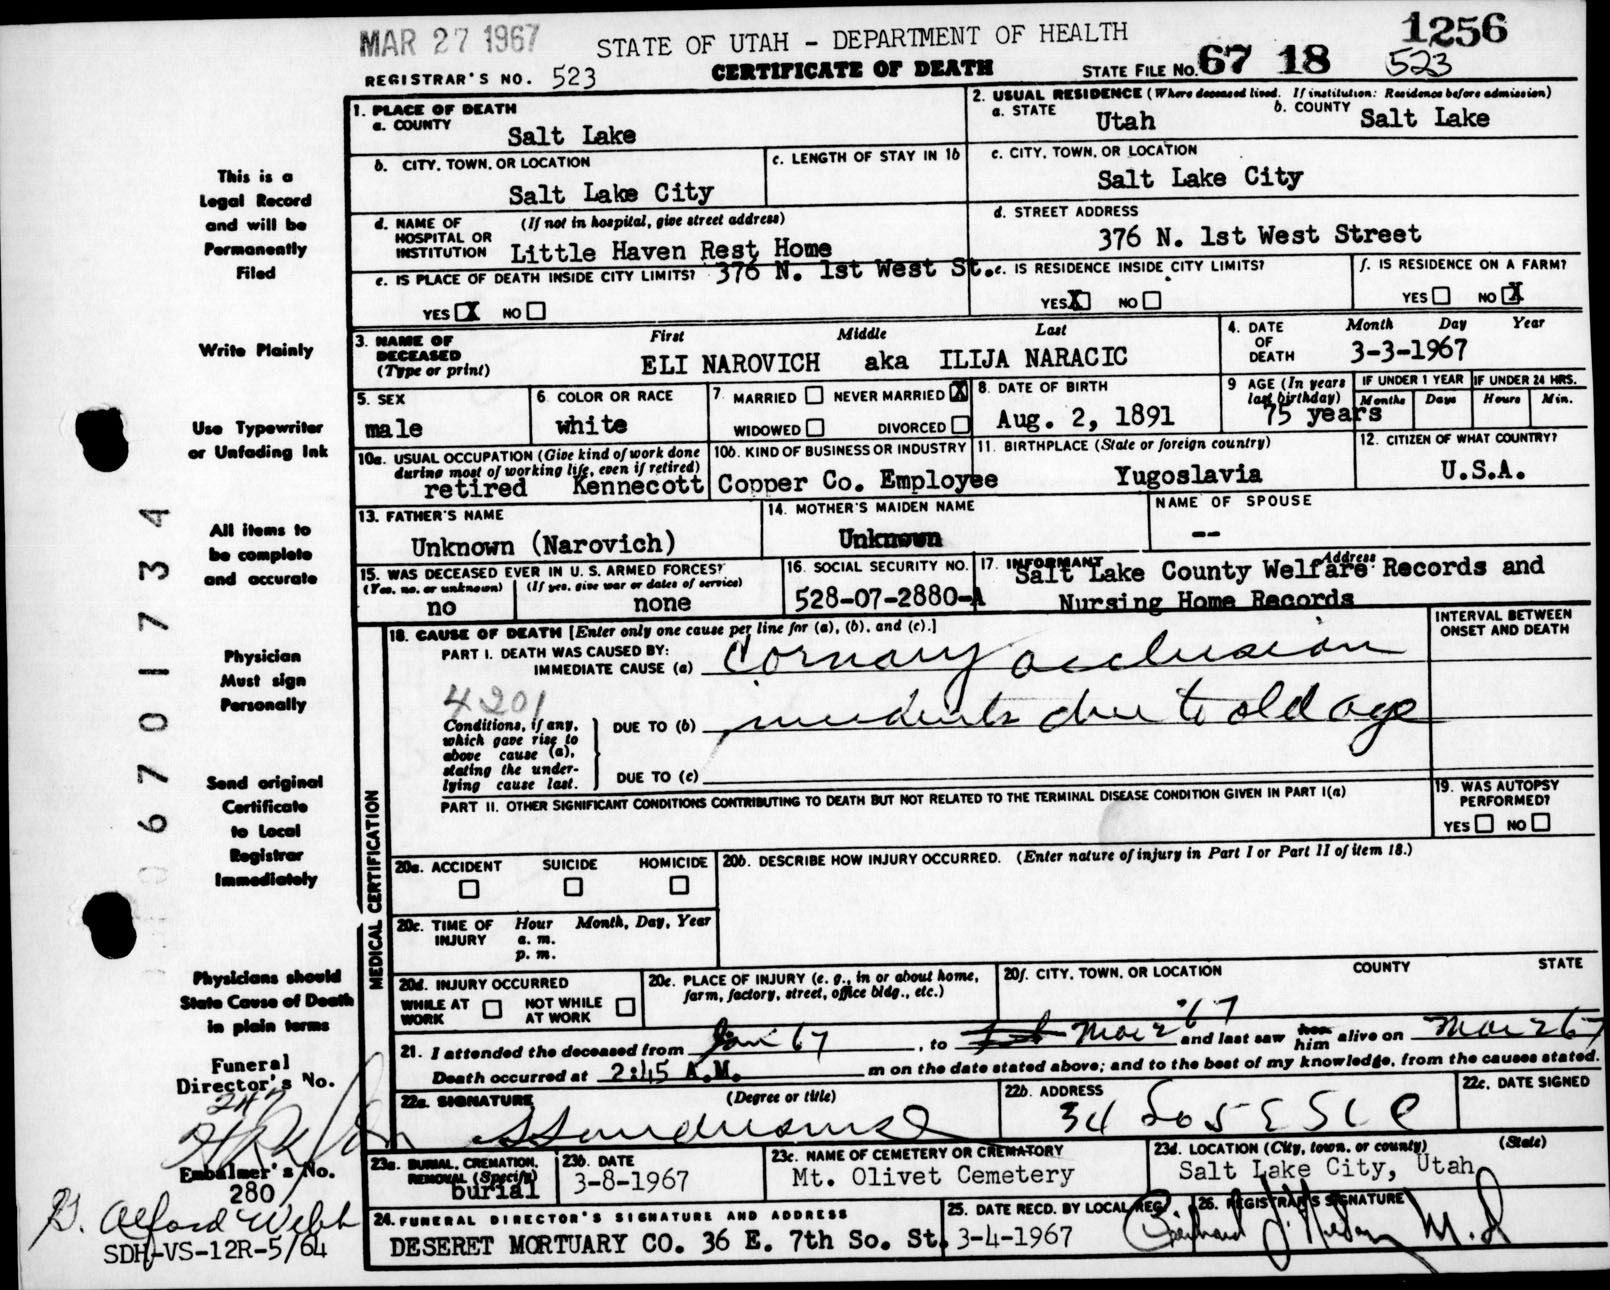 MAR 27 1967
STATE OF UTAH - DEPARTMENT OF HEALTH
1256
REGISTRAR'S NO. 523
CERTIFICATE OF DEATH
STATE FILE NO. 67 18 523
1. PLACE OF DEATH
a. COUNTY
Salt Lake
2. USUAL RESIDENCE (Where deceased lived. If institution: Residence before admission)
a. STATE Utah
b. COUNTY Salt Lake
b. CITY, TOWN, OR LOCATION
Salt Lake City
c. LENGTH OF STAY IN 1b
c. CITY, TOWN, OR LOCATION
Salt Lake City
d. NAME OF HOSPITAL OR INSTITUTION (If not in hospital, give street address)
Little Haven Rest Home
376 N. 1st West St.
d. STREET ADDRESS
376 N. 1st West Street
e. IS PLACE OF DEATH INSIDE CITY LIMITS?
YES X NO
e. IS RESIDENCE INSIDE CITY LIMITS?
YES X NO
f. IS RESIDENCE ON A FARM?
YES NO X
3. NAME OF DECEASED (Type or print)
First Middle Last
ELI NAROVICH aka ILIJA NARACIC
4. DATE OF DEATH
Month Day Year
3-3-1967
5. SEX
male
6. COLOR OR RACE
white
7. MARRIED NEVER MARRIED X
WIDOWED DIVORCED
8. DATE OF BIRTH
Aug. 2, 1891
9 AGE (In years last birthday)
75 years
IF UNDER 1 YEAR
Months Days
IF UNDER 24 HRS.
Hours Min.
10a. USUAL OCCUPATION (Give kind of work done during most of working life, even if retired)
retired Kennecott
10b. KIND OF BUSINESS OR INDUSTRY
Copper Co. Employee
11. BIRTHPLACE (State or foreign country)
Yugoslavia
12. CITIZEN OF WHAT COUNTRY?
U.S.A.
13. FATHER'S NAME
Unknown (Narovich)
14. MOTHER'S MAIDEN NAME
Unknown
NAME OF SPOUSE
--
15. WAS DECEASED EVER IN U. S. ARMED FORCES?
(Yes, no, or unknown) (If yes, give war or dates of service)
no none
16. SOCIAL SECURITY NO.
528-07-2880-A
17. INFORMANT Address
Salt Lake County Welfare Records and
Nursing Home Records
MEDICAL CERTIFICATION
18. CAUSE OF DEATH [Enter only one cause per line for (a), (b), and (c).]
INTERVAL BETWEEN ONSET AND DEATH
PART I. DEATH WAS CAUSED BY:
IMMEDIATE CAUSE (a) Cornary occlusion
4201
Conditions, if any, which gave rise to above cause (a), stating the underlying cause last.
DUE TO (b) due to old age
DUE TO (c)
PART II. OTHER SIGNIFICANT CONDITIONS CONTRIBUTING TO DEATH BUT NOT RELATED TO THE TERMINAL DISEASE CONDITION GIVEN IN PART I(a)
19. WAS AUTOPSY PERFORMED?
YES NO
20a. ACCIDENT SUICIDE HOMICIDE
20b. DESCRIBE HOW INJURY OCCURRED. (Enter nature of injury in Part I or Part II of item 18.)
20c. TIME OF INJURY
Hour Month, Day, Year
a. m.
p. m.
20d. INJURY OCCURRED
WHILE AT WORK NOT WHILE AT WORK
20e. PLACE OF INJURY (e. g., in or about home, farm, factory, street, office bldg., etc.)
20f. CITY, TOWN, OR LOCATION COUNTY STATE
21. I attended the deceased from Jan 67, to Mar 2 '67 and last saw him alive on Mar 2 67
Death occurred at 2:45 A.M. m on the date stated above; and to the best of my knowledge, from the causes stated.
22a. SIGNATURE (Degree or title)
22b. ADDRESS
34 So 5 E SLC
22c. DATE SIGNED
23a. BURIAL, CREMATION, REMOVAL (Specify)
burial
23b. DATE
3-8-1967
23c. NAME OF CEMETERY OR CREMATORY
Mt. Olivet Cemetery
23d. LOCATION (City, town, or county) (State)
Salt Lake City, Utah
24. FUNERAL DIRECTOR'S SIGNATURE AND ADDRESS
DESERET MORTUARY CO. 36 E. 7th So. St.
25. DATE RECD. BY LOCAL REG.
3-4-1967
26. REGISTRAR'S SIGNATURE
M.D
This is a
Legal Record
and will be
Permanently
Filed
Write Plainly
Use Typewriter
or Unfading Ink
All items to
be complete
and accurate
Physician
Must sign
Personally
Send original
Certificate
to Local
Registrar
Immediately
Physicians should
State Cause of Death
in plain terms
Funeral
Director's No.
Embalmer's No.
280
G. Alford Webb
SDH-VS-12R-5/64
6701734